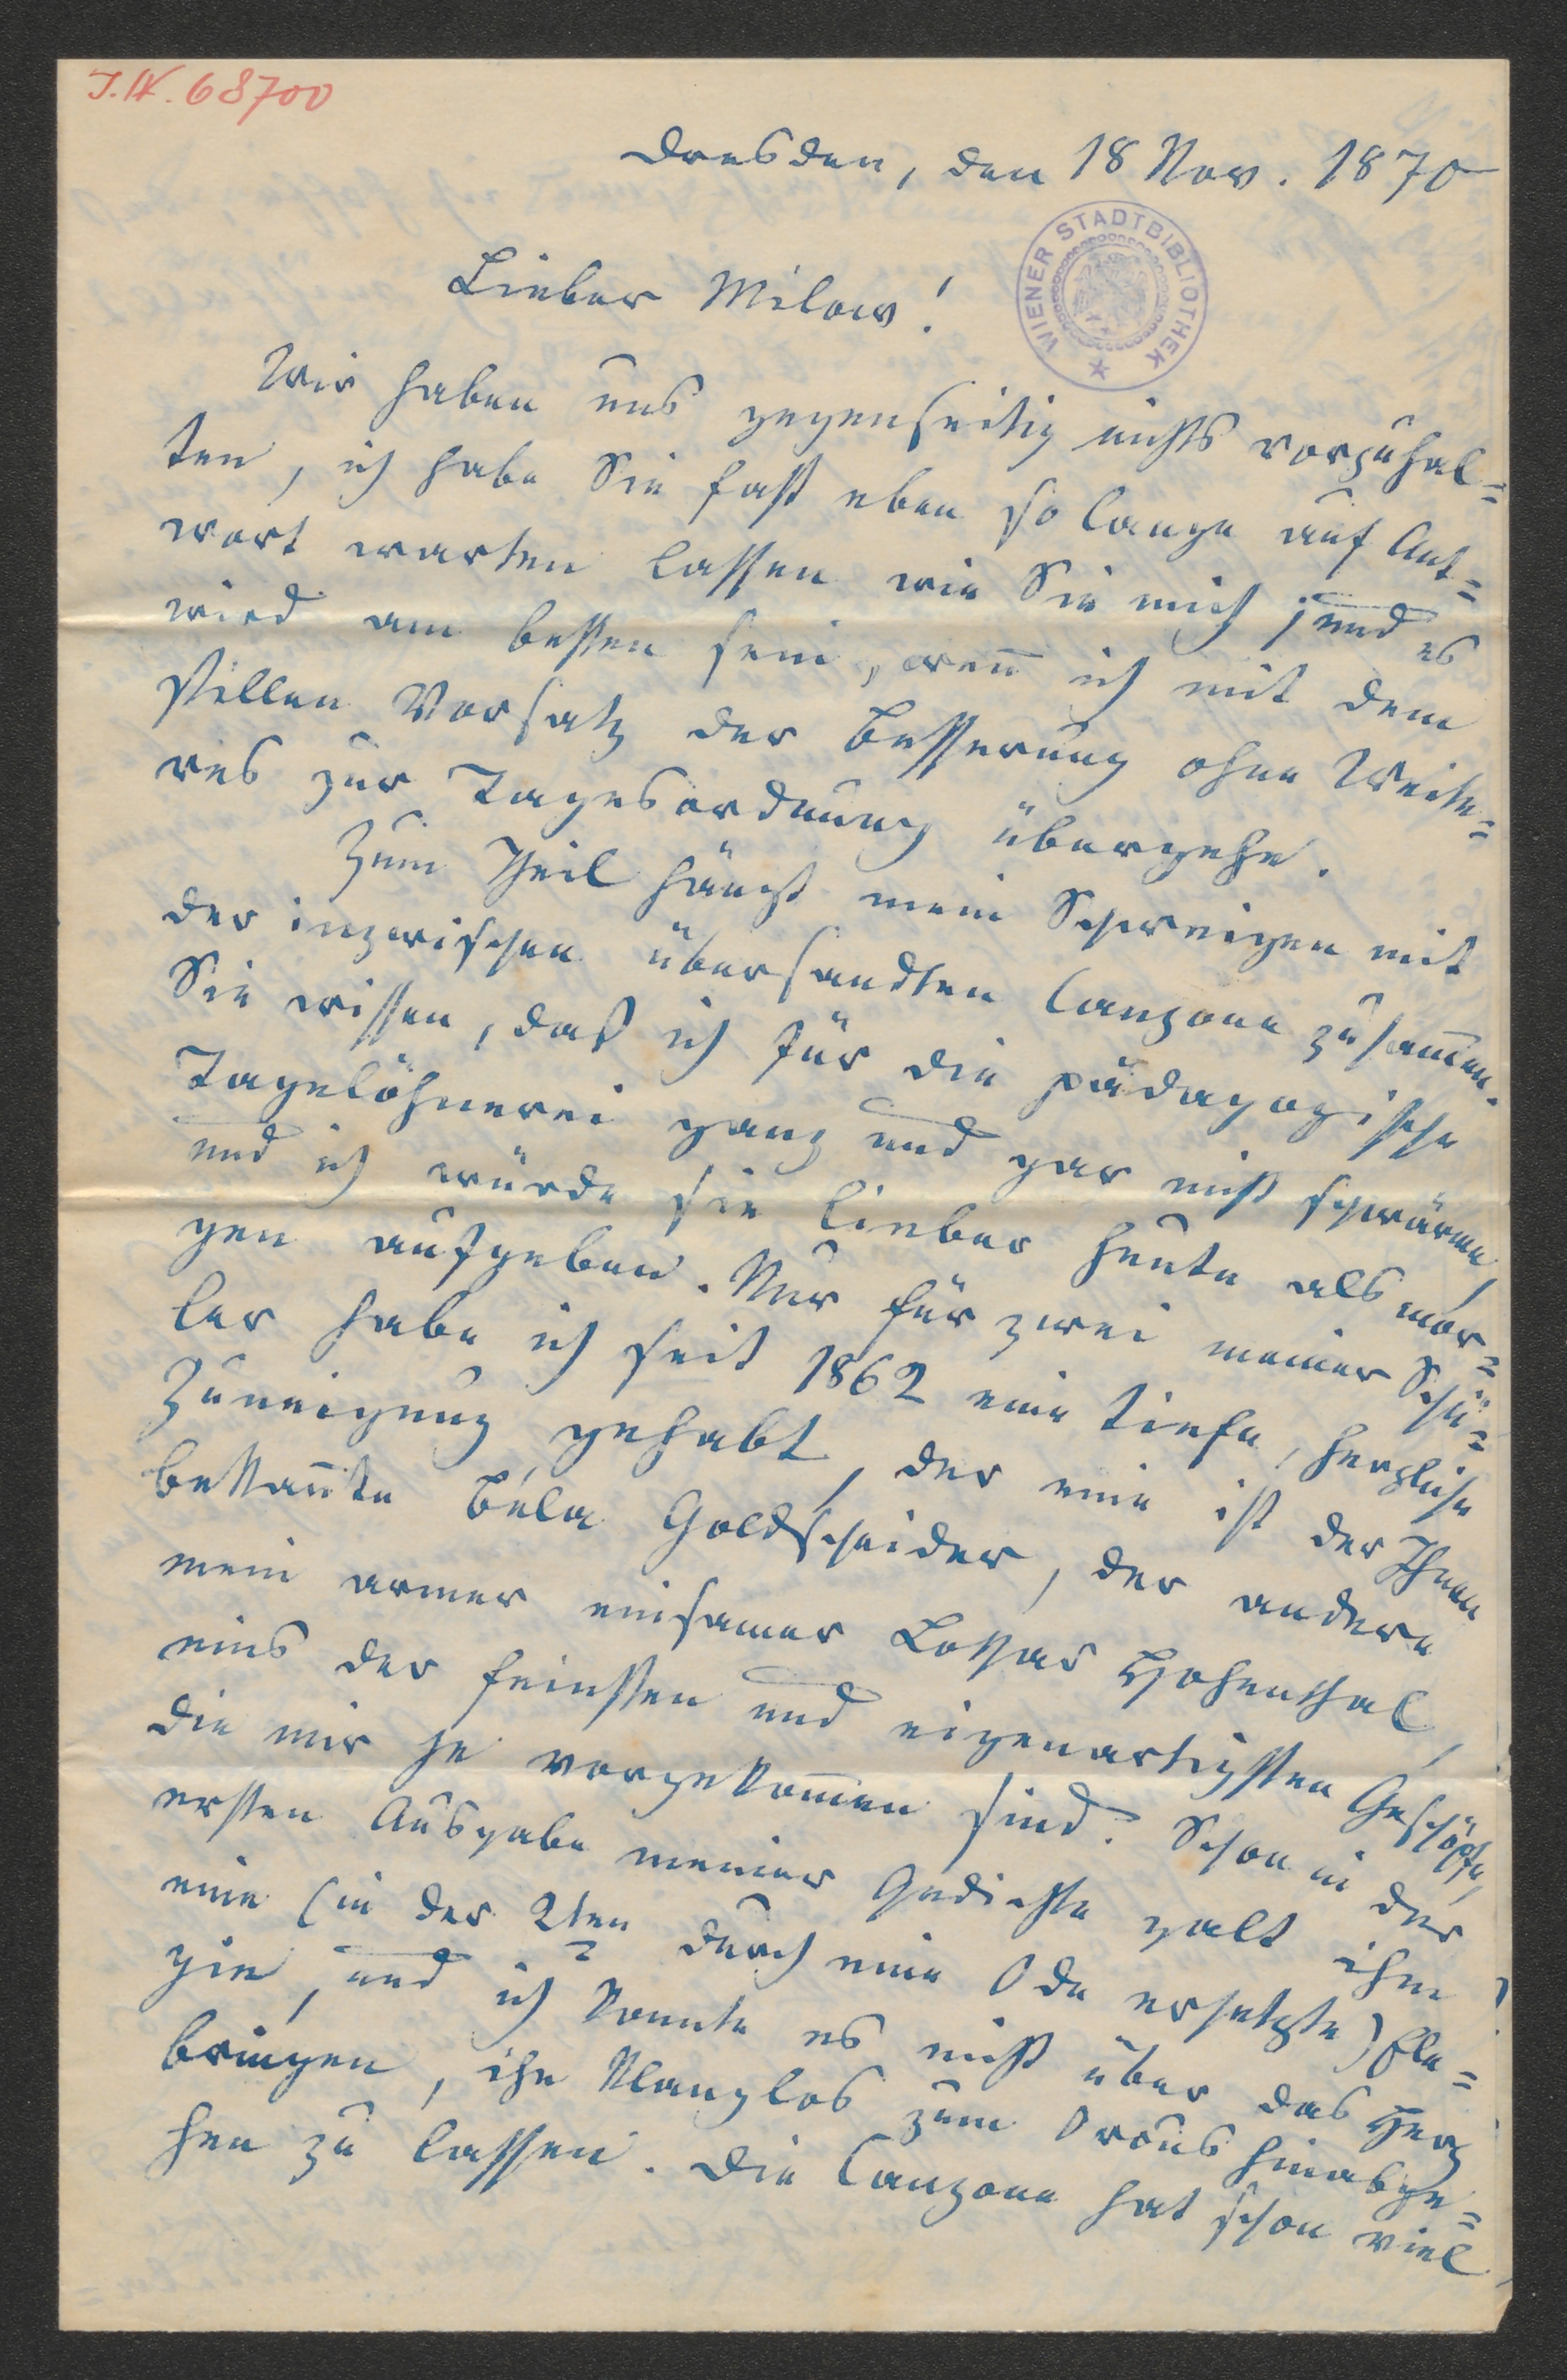 J.N. 68700
Dresden, den 18 Nov. 1870
WIENER STADTBIBLIOTHEK
Lieber Milow!
Wir haben uns gegenseitig nichts vorzuhal=
ten, ich habe Sie fast eben so lange auf Ant=
wort warten lassen wie Sie mich; und es
wird am besten sein, weñ ich mit dem
stillen Vorsatz der Besserung ohne Weite=
res zur Tagesordnung übergehe.
Zum Theil hängt mein Schweigen mit
der inzwischen übersandten Canzone zusam̄en.
Sie wissen, daß ich für die pädagogische
Tagelöhnerei ganz und gar nicht schwärme,
und ich würde sie lieber heute als mor=
gen aufgeben. Nur für zwei meiner Schü=
ler habe ich seit 1862 eine tiefe, herzliche
Zuneigung gehabt, der eine ist der Ihnen
bekañte Béla Goldscheider, der andere
mein armer einsamer Lothar Hohenthal,
eins der feinsten und eigenartigsten Geschöpfe,
die mir je vorgekom̄en sind. Schon in der
ersten Ausgabe meiner Gedichte galt ihm
eine (in der 2ten durch eine Ode ersetzte) Ele=
gie, und ich konnte es nicht über das Herz
bringen, ihn klanglos zum Orcus hinabge=
hen zu lassen. Die Canzone hat schon viel